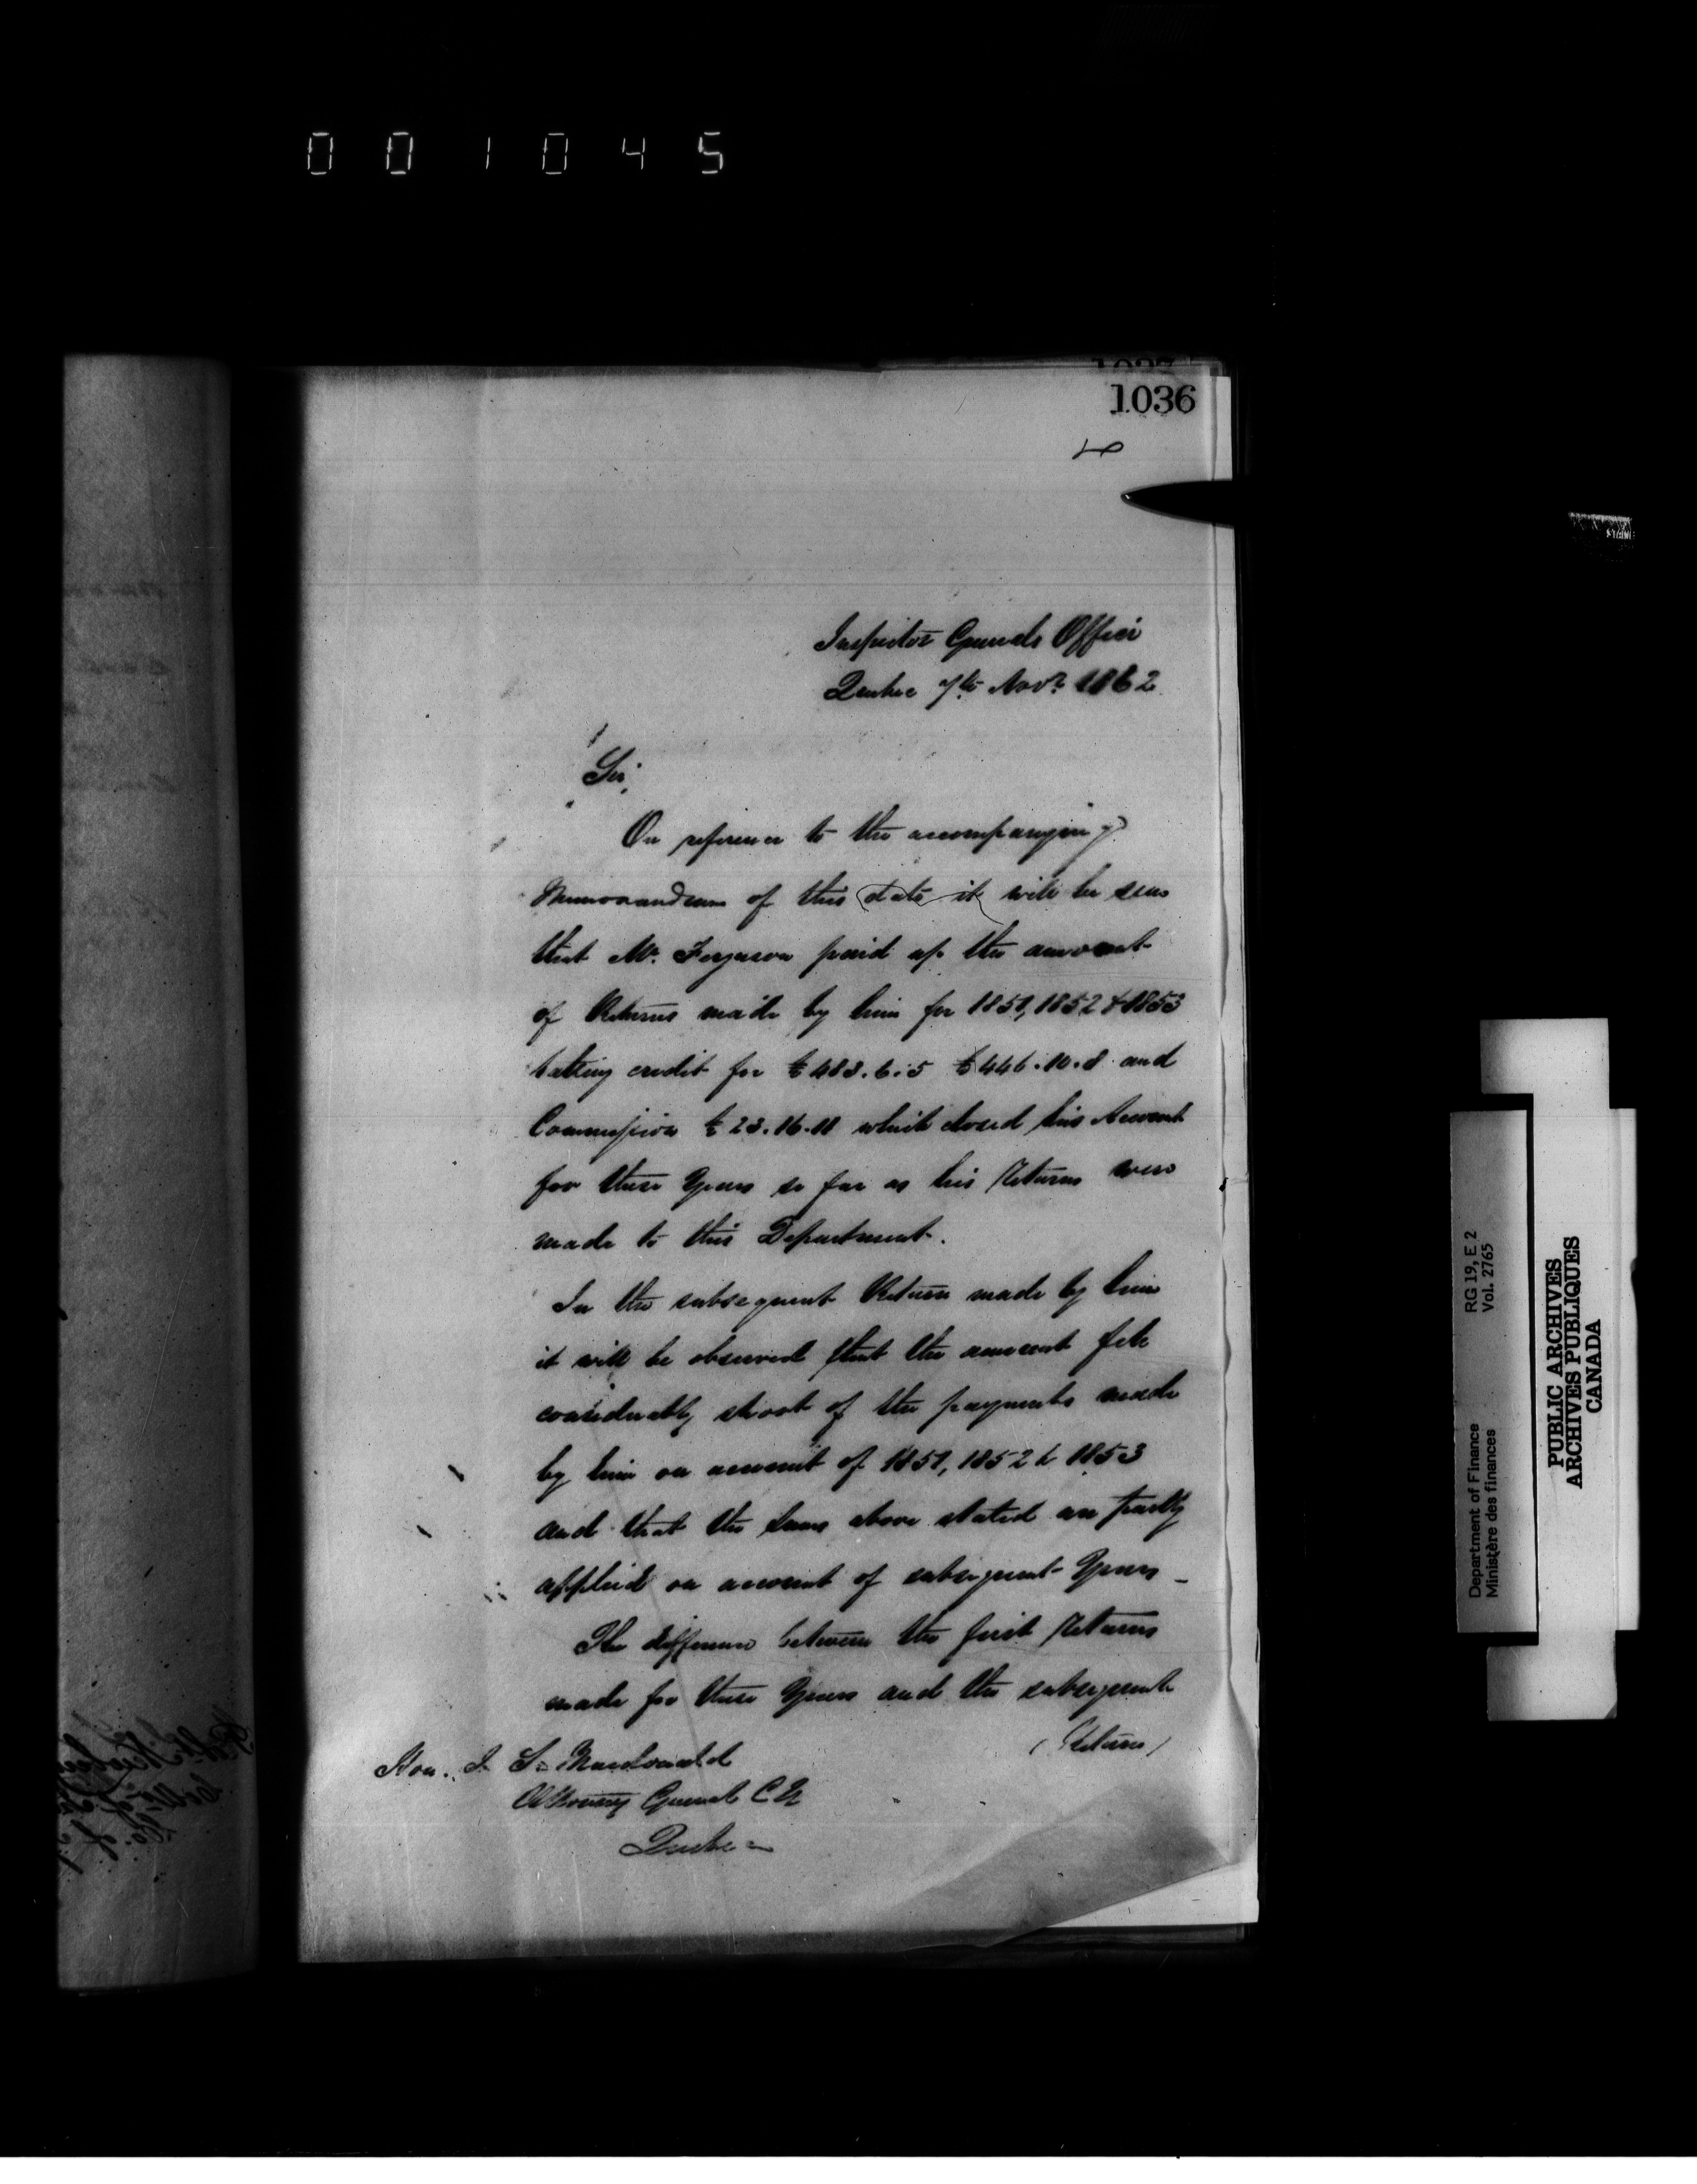 001045
1036
Inspector Generals Office
Quebec 7th Novr. 1862
Sir,
On reference to the accompanying
Memorandum of this date it will be seen
that Mr. Ferguson paid up the amount
of Returns made by him for 1851, 1852 & 1853
taking credit for £483.6.5 £446.10.8 and
Commission £23.16.11 which closed his Account
for these Years so far as his Returns were
made to this Department.
In the subsequent Return made by him
it will be observed that the amount fell
considerably short of the payments made
by him on account of 1851, 1852 & 1853
and that the sums above stated are partly
applied on account of subsequent Years
The difference between the first Returns
made for these Years and the subsequent
(Returns)
Hon. J. S. Macdonald
Attorney General C W
Quebec
Department of Finance RG 19, E 2
Ministère des finances Vol. 2765
PUBLIC ARCHIVES
ARCHIVES PUBLIQUES
CANADA